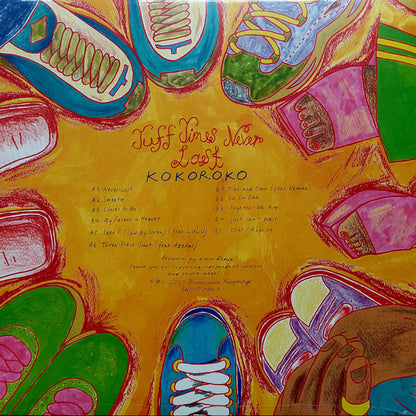 Tuff Times Never
Last
KOKOROKO
A1 Never Lost
A2 Sweetie
A3 Closer to Me
A4 My Father in Heaven
A5 Idea 5 (Call My Name) (feat. LULU.)
A6 Three Piece Suit (feat. Azekel)
B1 Time and Time (feat. Demae)
B2 Da Du Dah
B3 Together We Are
B4 Just Can't Wait
B5 Over / Reprise
Artwork by Luci Pina
Thank you for supporting independent artists
and record labels.
Brownswood Recordings